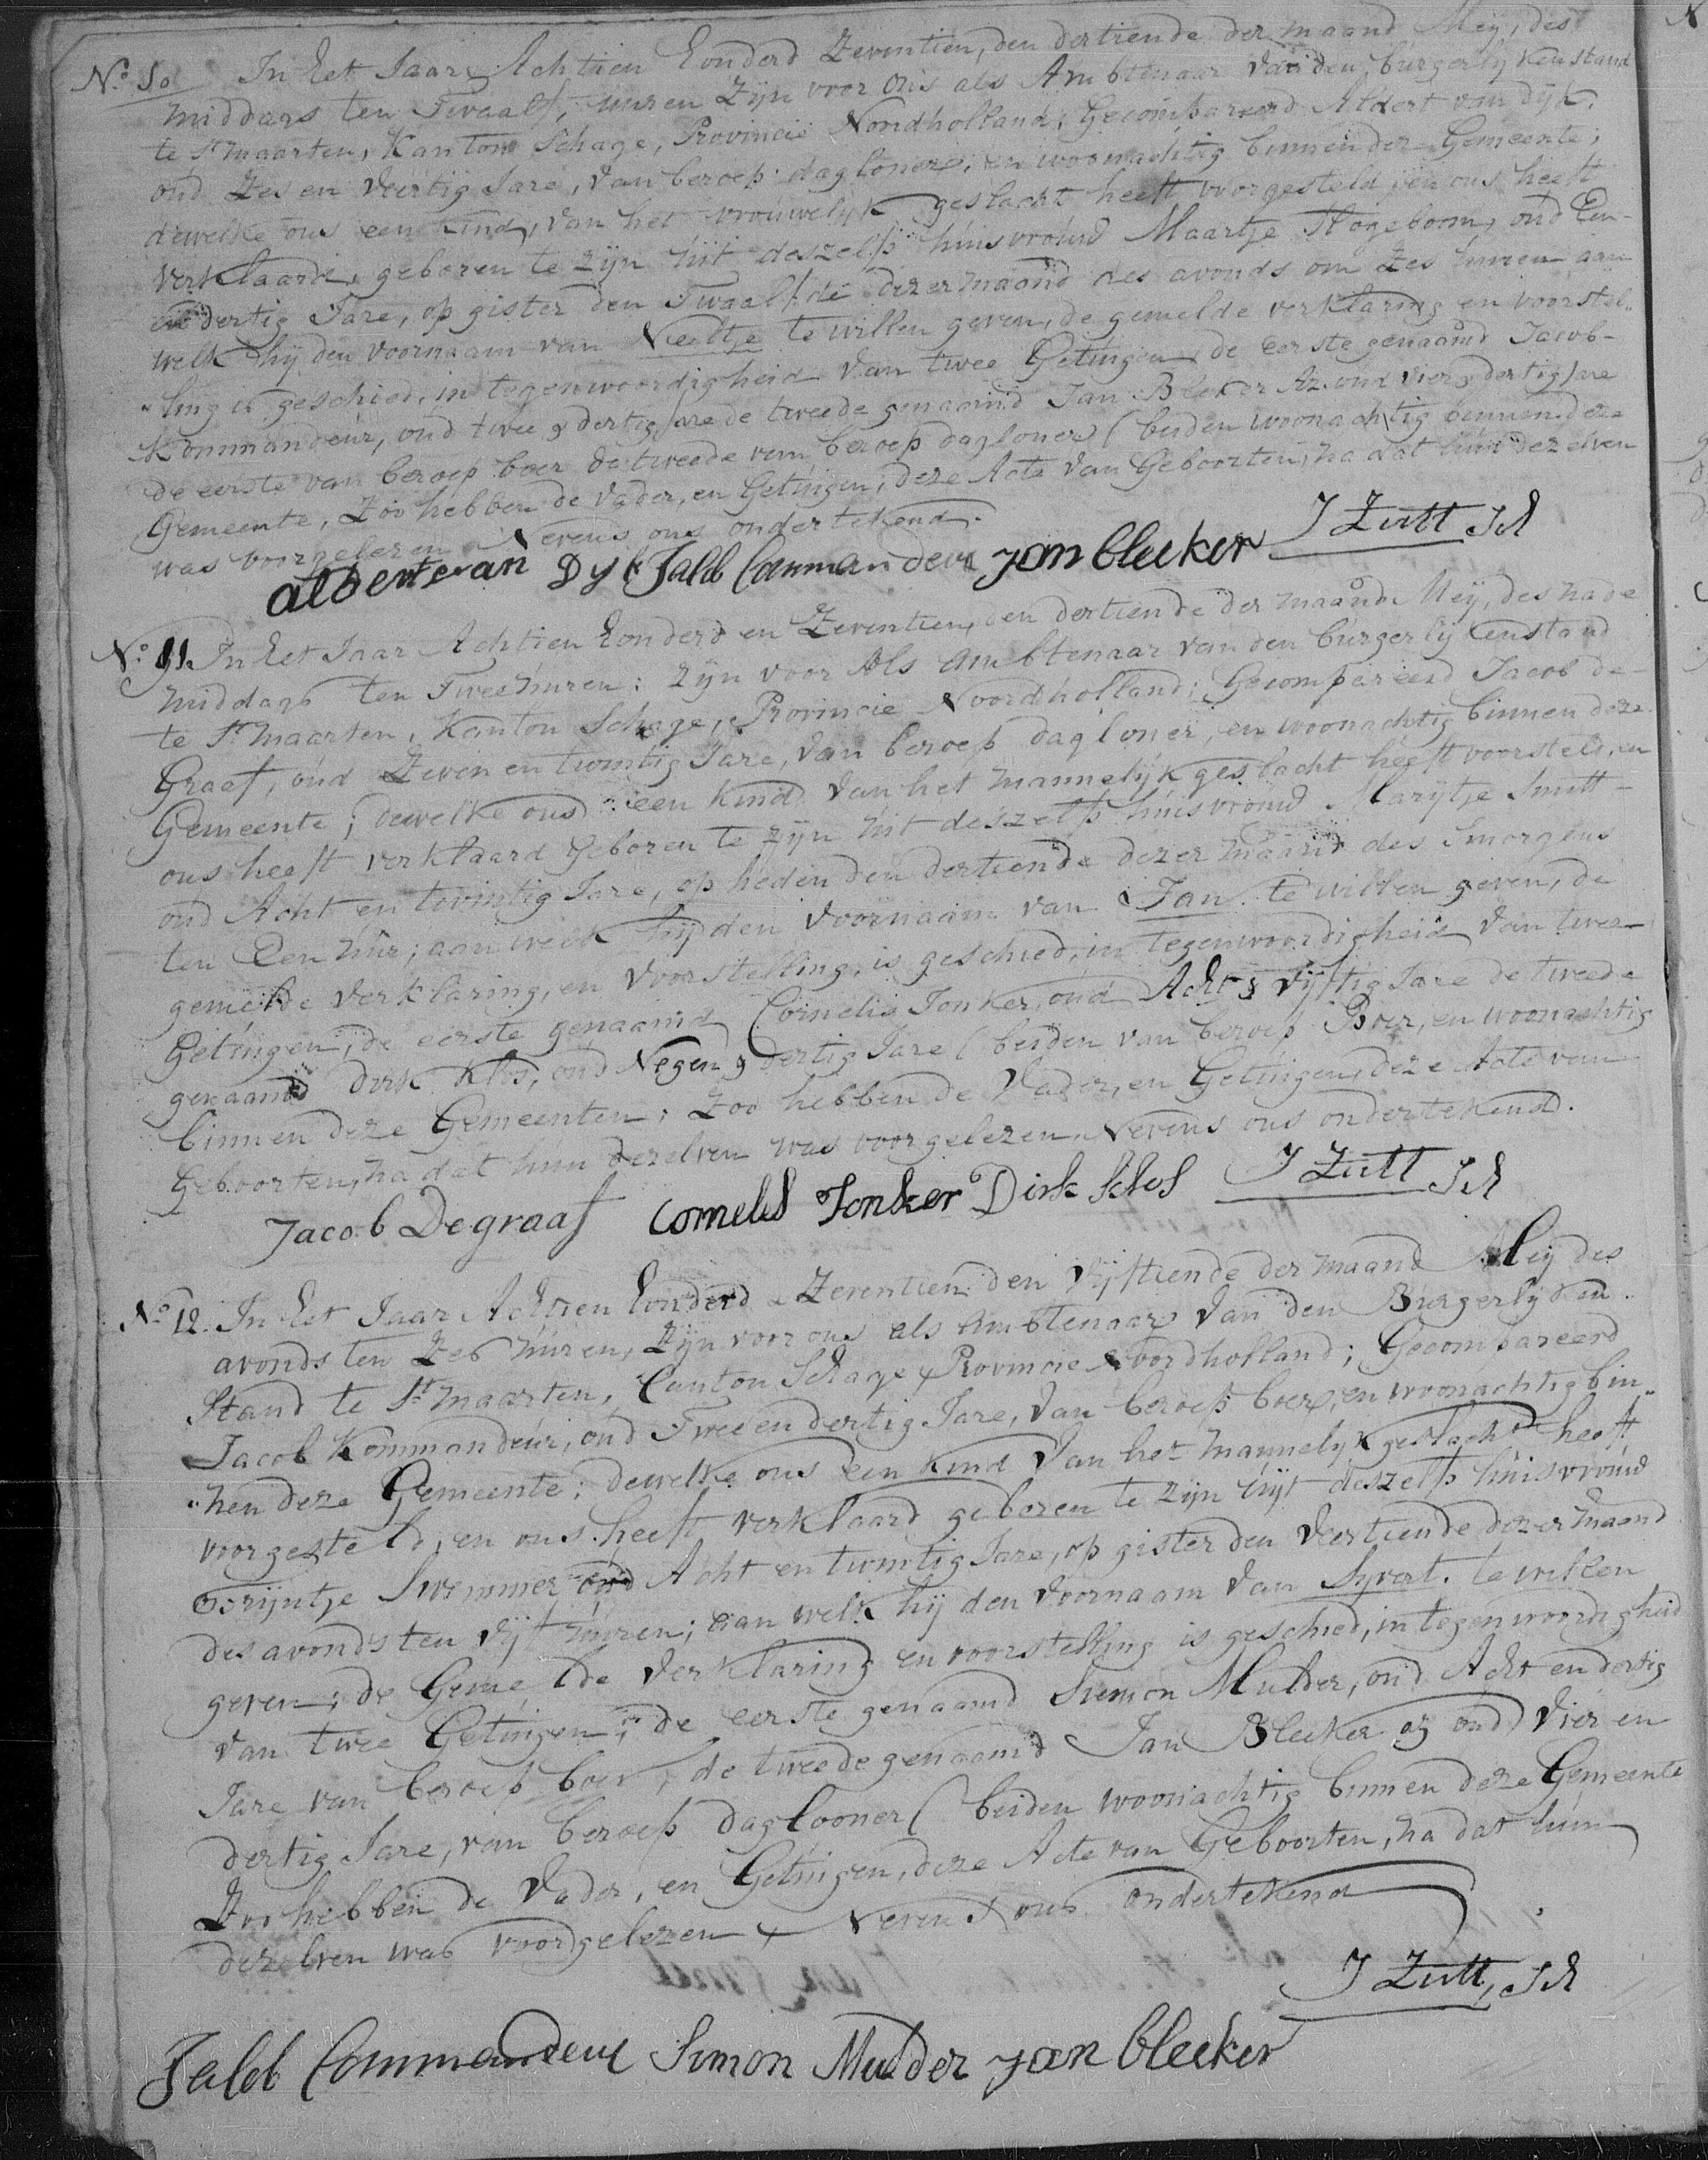 No. 10 In het Jaar, Achtien honderd Zeventien, den dertiende der maand Meij, des
middags ten Twaalf, uuren zijn voor ons als Ambtenaar van den burgerlyken stand
te St maarten, Kanton Schage, Provincie Noordholland; Gecompareerd Aldert van dijk.
oud Zes en veertig Jare, van beroep dagloner, en woonachtig binnen deze Gemeente;
dewelke ons een kind, van het vrouwelyk geslacht heeft voorgesteld, en ons heeft
verklaard, geboren te zijn uit deszelfs huisvrouw Maartje Hogeboom, oud Een-
en dertig Jare, op gister den Twaalfde dezer maand des avonds om Zes uuren aan
welk hij den voornaam van Neeltje te willen geven, de gemelde verklaring en voorstel„
„ling is geschied, in tegenwoordigheid van twee Getuigen, de eerste genaamd Jacob-
Kommandeur, oud twee & dertig Jare de tweede genaamd Jan Bleker Az. oud vier & dertig Jare
de eerste van beroep boer de tweede van beroep dagloner (beiden woonachtig binnen deze
Gemeente, Zoo hebben de vader, en Getuigen, deze Acte van Geboorten, na dat hun dezelven
was voorgelezen Nevens ons ondertekend.
aldert van Dyk Jakob Commandeur jan bleeker J Zutt Sch
No. 11. In het Jaar Achtien honderd en Zeventien, den dertiende der maand Meij, des nade
middags ten Twee uuren: zijn voor Als Ambtenaar van den burgerlijken stand
te St maarten, Kanton Schage, Provincie Noordholland; Gecompareerd Jacob de-
Graaf, oud Zeven en twintig Jare, van beroep dagloner, en woonachtig binnen deze
Gemeente; dewelke ons een kind van het mannelijk geslacht heeft voorsteld, en
ons heeft verklaard Geboren te zijn uit deszelfs huisvrouw Marijtje Smitt-
oud Acht en twintig Jare, op heden den dertiende dezer maand des Smorgens
ten Een uur; aan welk hij den Voornaam van Jan te willen geven, de
gemelde verklaring, en voorstelling, is geschied, in tegenwoordigheid van twee
Getuigen, de eerste genaamd Cornelis Jonker, oud Acht & vijftig Jare de tweede
genaamd Dirk Klos, oud Negen & dertig Jare (beiden van beroep Boer, en woonachtig
binnen deze Gemeenten; Zoo hebben de Vader, en Getuigen, deze Acte van
Geboorten, na dat hun dezelven was voorgelezen, Nevens ons ondertekend.
Jacob Degraaf Cornelis Jonker Dirk Klos J Zutt Sch
No. 12. In het Jaar Achtien honderd Zeventien den Vijftiende der maand Meij des
avonds ten Zes uuren, zijn voor ons als Ambtenaar van den Burgerlyken
Stand te St maarten, Canton Schage, Provincie Noordholland; Gecompareerd
Jacob Kommandeur, oud Twee en dertig Jare, van beroep boer, en woonachtig bin„
„nen deze Gemeente; dewelke ons een kind van het mannelyk geslacht heeft
voorgesteld, en ons heeft verklaard geboren te zijn uijt deszelfs huisvrouw
Trijntje Swemmer oud Acht en twintig Jare, op gister den veertiende dezer maand
des avonds ten vijf uuren; aan welk hij den voornaam van Syvert. te willen
geven; de Gemelde verklaring en voorstelling is geschied, in tegenwoordigheid
van twee Getuigen; de eerste genaamd Siemon Mulder, oud Acht en dertig
Jare van beroep boer, de tweede genaamd Jan Bleeker az oud Vier en
dertig Jare, van beroep daglooner (beiden woonachtig binnen deze Gemeente
Zoo hebben de Vader, en Getuigen, deze Acte van Geboorten, na dat hun
dezelven was voordgelezen Nevens ons ondertekend
J Zutt, Sch
Jakob Commandeur Simon Mulder jan bleeker